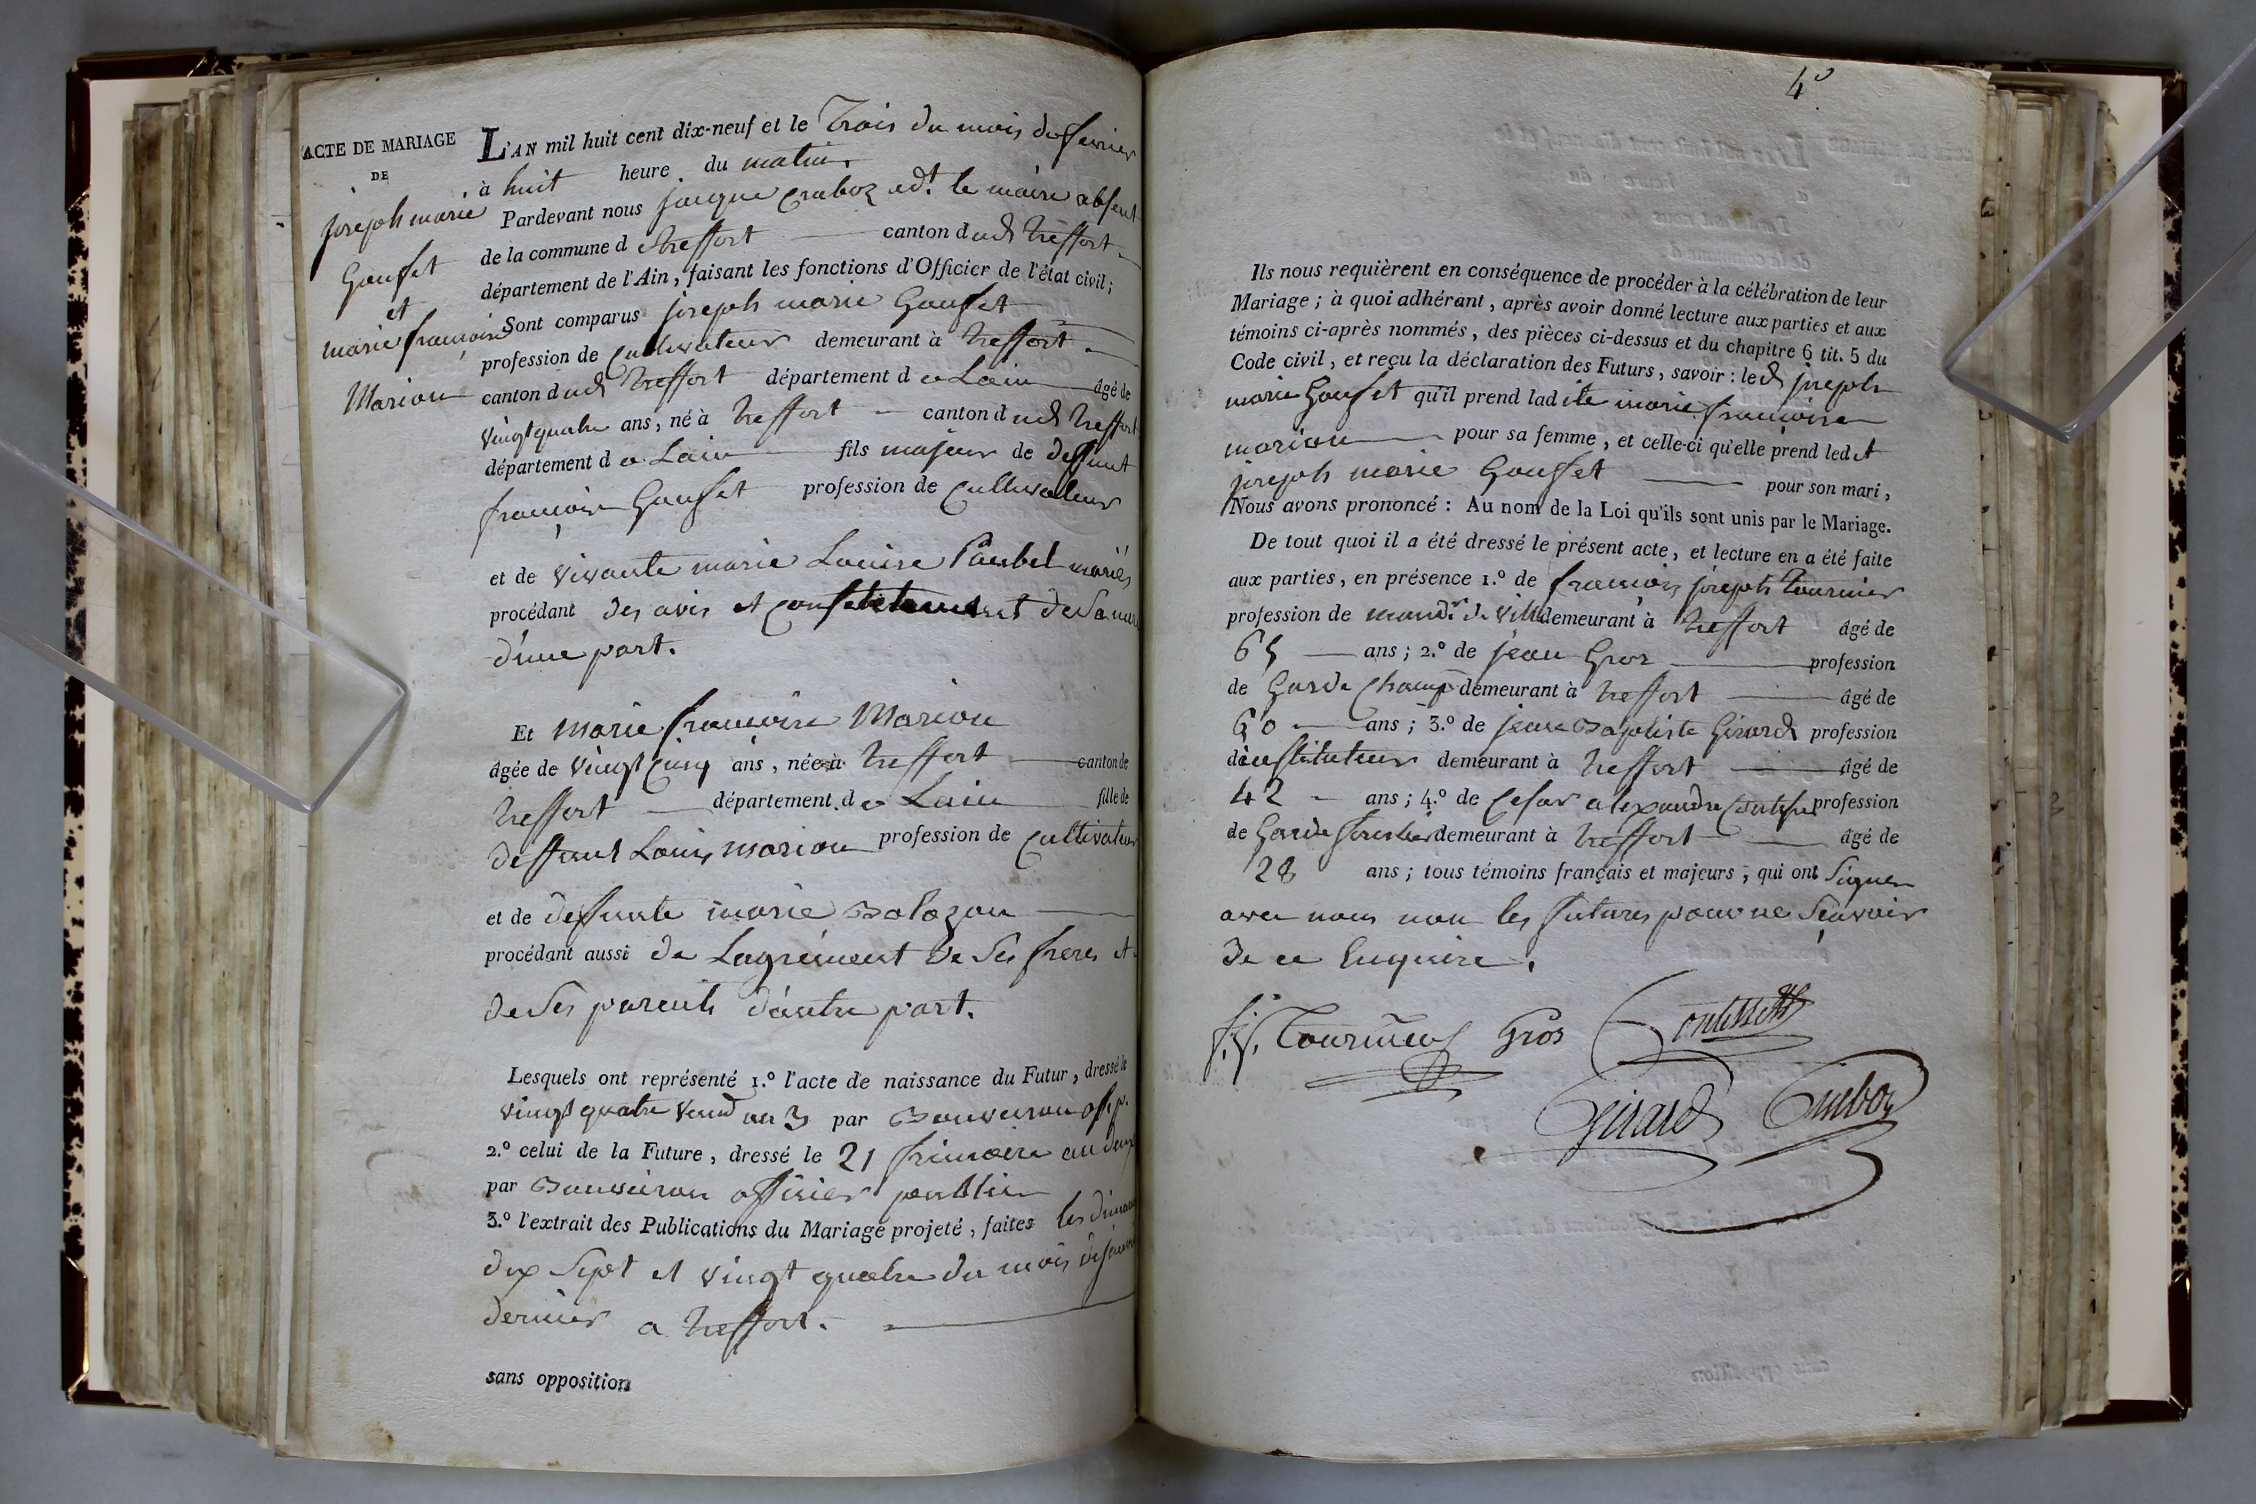 ACTE DE MARIAGE
DE
joseph marie
Gauset
et
marie françoise
Marion
L'AN mil huit cent dix-neuf et le Trois du mois de fevrier
à huit heure du matin.
Pardevant nous jacque adt. le maire absent
de la commune de treffort canton dudt treffort
département de l'Ain, faisant les fonctions d'Officier de l'état civil;
Sont comparus joseph marie
profession de Cultivateur demeurant à treffort
canton dudt treffort département de Lain âgé de
vingt quatre ans, né à treffort canton dudt treffort
département de Lain fils majeur de deffunt
françois profession de Cultivateur
et de vivante marie Louise mariés
procédant des avis et de sa mere
d'une part.
Et marie françoise Marion
âgée de vingt cinq ans, née à treffort canton de
treffort département de Lain fille de
deffunt Louis marion profession de Cultivateur
et de defunte marie
procédant aussi de Lagrément de ses freres et
de ses parents d'autre part.
Lesquels ont représenté 1.º l'acte de naissance du Futur, dressé le
vingt quatre vend an 3 par off. p.
2.º celui de la Future, dressé le 21 frimaire an deux
par officier publie
3.º l'extrait des Publications du Mariage projeté, faites les
dix Sept et vingt quatre du mois de
dernier a treffort.
sans opposition
4
Ils nous requièrent en conséquence de procéder à la célébration de leur
Mariage; à quoi adhérant, après avoir donné lecture aux parties et aux
témoins ci-après nommés, des pièces ci-dessus et du chapitre 6 tit. 5 du
Code civil, et reçu la déclaration des Futurs, savoir: ledt joseph
marie qu'il prend ladite marie françoise
marion pour sa femme, et celle-ci qu'elle prend ledt
joseph marie pour son mari,
Nous avons prononcé: Au nom de la Loi qu'ils sont unis par le Mariage.
De tout quoi il a été dressé le présent acte, et lecture en a été faite
aux parties, en présence 1.º de françois joseph Tournier
profession de de ville demeurant à treffort âgé de
65 ans; 2.º de jean Gros profession
de Garde Champ demeurant à treffort âgé de
60 ans; 3.º de jean Baptiste Girard profession
dinstituteur demeurant à treffort âgé de
42 ans; 4.º de Cesar alexandre profession
de Garde forestier demeurant à treffort âgé de
28 ans; tous témoins français et majeurs; qui ont signer
avec nous non les futures pour ne Sçavoir
de ce Enquire.
f. j. Tournier Gros
Girard